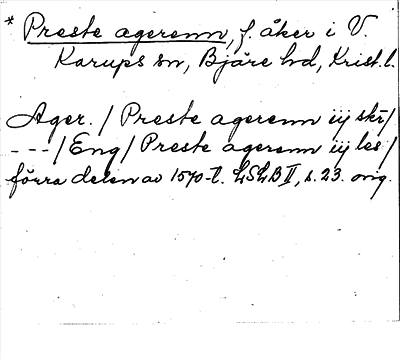 * Preste agerenn, f. åker i V.
Karups sn, Bjäre hd, Krist. l.
Ager. / Preste agerenn iij skr /
--- / Eng / Preste agerenn iij les /
förra delen av 1570-t. LSLB II, s. 23. orig.